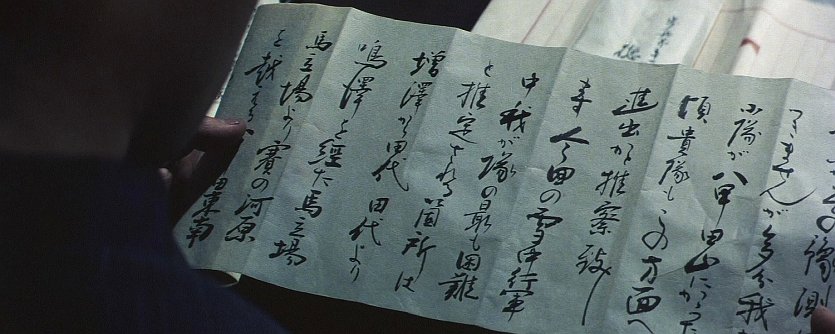 の豫測
つきませんが多分我
小隊が八甲田山にかゝった
頃貴隊もこの方面へ
進出かと推察致し
寿 今回の雪中行軍
中我が隊の最も困難
と推定される箇所は
増澤から田代 田代より
鳴澤を経た馬立場
馬立場より賽の河原
を越え
田東南